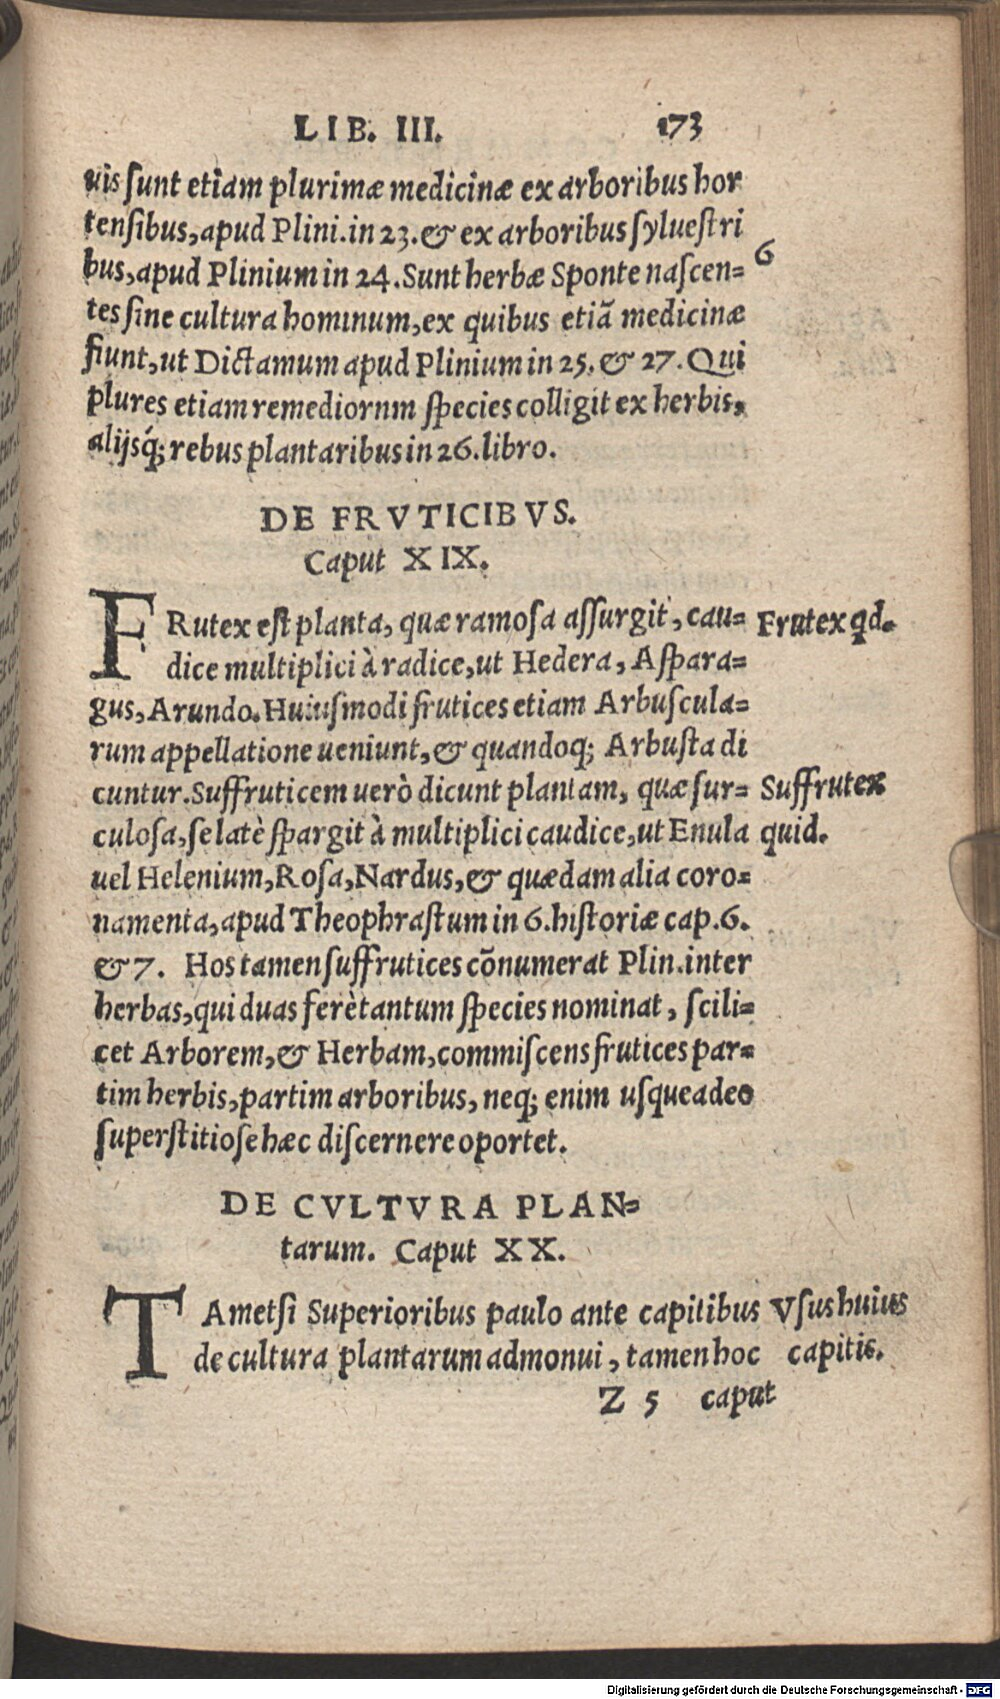 LIB. III. 173
uis ſunt etiam plurimæ medicinæ ex arboribus hor
tenſibus, apud Plini. in 23. & ex arboribus ſylueſtri
bus, apud Plinium in 24. Sunt herbæ Sponte naſcen= 6
tes ſine cultura hominum, ex quibus etiã medicinæ
fiunt, ut Dictamum apud Plinium in 25. & 27. Qui
plures etiam remediornm ſpecies colligit ex herbis,
alijsq́; rebus plantaribus in 26. libro.
DE FRVTICIBVS.
Caput XIX.
FRutex eſt planta, quæ ramoſa aſſurgit, cau= Frutex qd.
dice multiplici à radice, ut Hedera, Aſpara=
gus, Arundo. Huiuſmodi frutices etiam Arbuſcula=
rum appellatione ueniunt, & quandoq; Arbuſta di
cuntur. Suffruticem uerò dicunt plantam, quæ ſur= Suffrutex
culoſa, ſe latè ſpargit à multiplici caudice, ut Enula quid.
uel Helenium, Roſa, Nardus, & quædam alia coro=
namenta, apud Theophraſtum in 6. hiſtoriæ cap. 6.
& 7. Hos tamen ſuffrutices cõnumerat Plin. inter
herbas, qui duas ferè tantum ſpecies nominat, ſcili=
cet Arborem, & Herbam, commiſcens frutices par=
tim herbis, partim arboribus, neq; enim uſqueadeo
ſuperſtitioſe hæc diſcernere oportet.
DE CVLTVRA PLAN=
tarum. Caput XX.
TAmetſi Superioribus paulo ante capitibus Vſus huius
de cultura plantarum admonui, tamen hoc capitis.
Z 5 caput
Digitalisierung gefördert durch die Deutsche Forschungsgemeinschaft - DFG